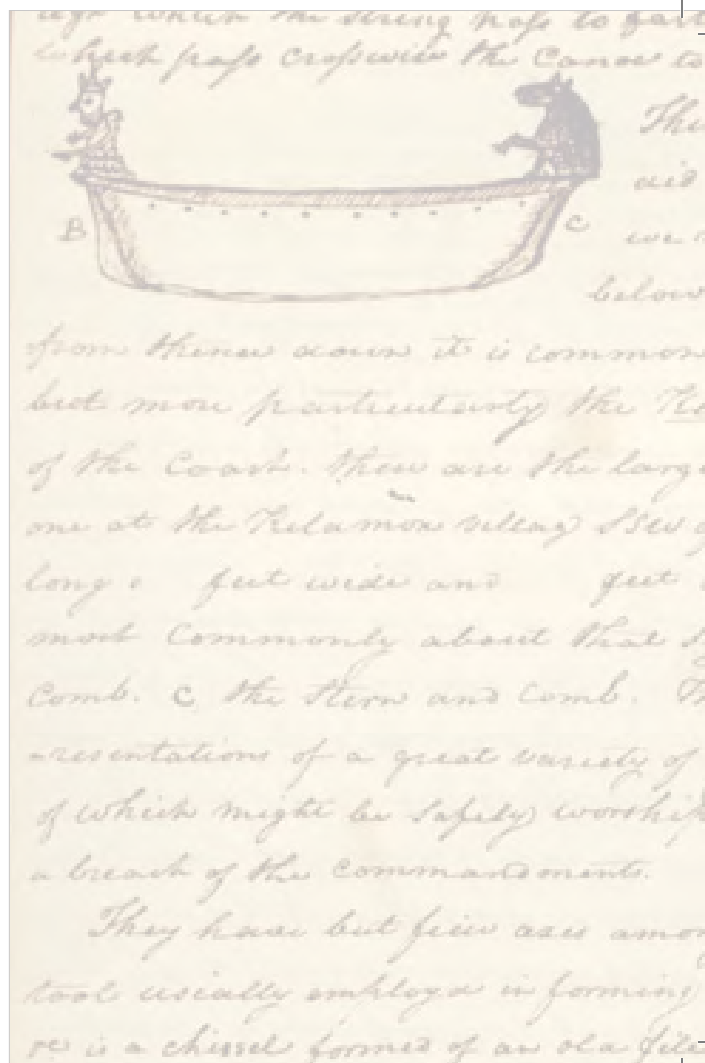 which the string pass to
which pass crosswise the Canoe to
B
C
aid
we
below
from thence down it is common
but more particularly the
of the Coast. these are the large
one at the Kilamox village SSW
long & feet wide and feet
most Commonly about that
Comb. C the Stern and Comb.
resentations of a great variety of
of which might be safely worship
a breach of the commandments.
They have but fiew axes among
tool usially employd in forming
is a chissel formed of an old file